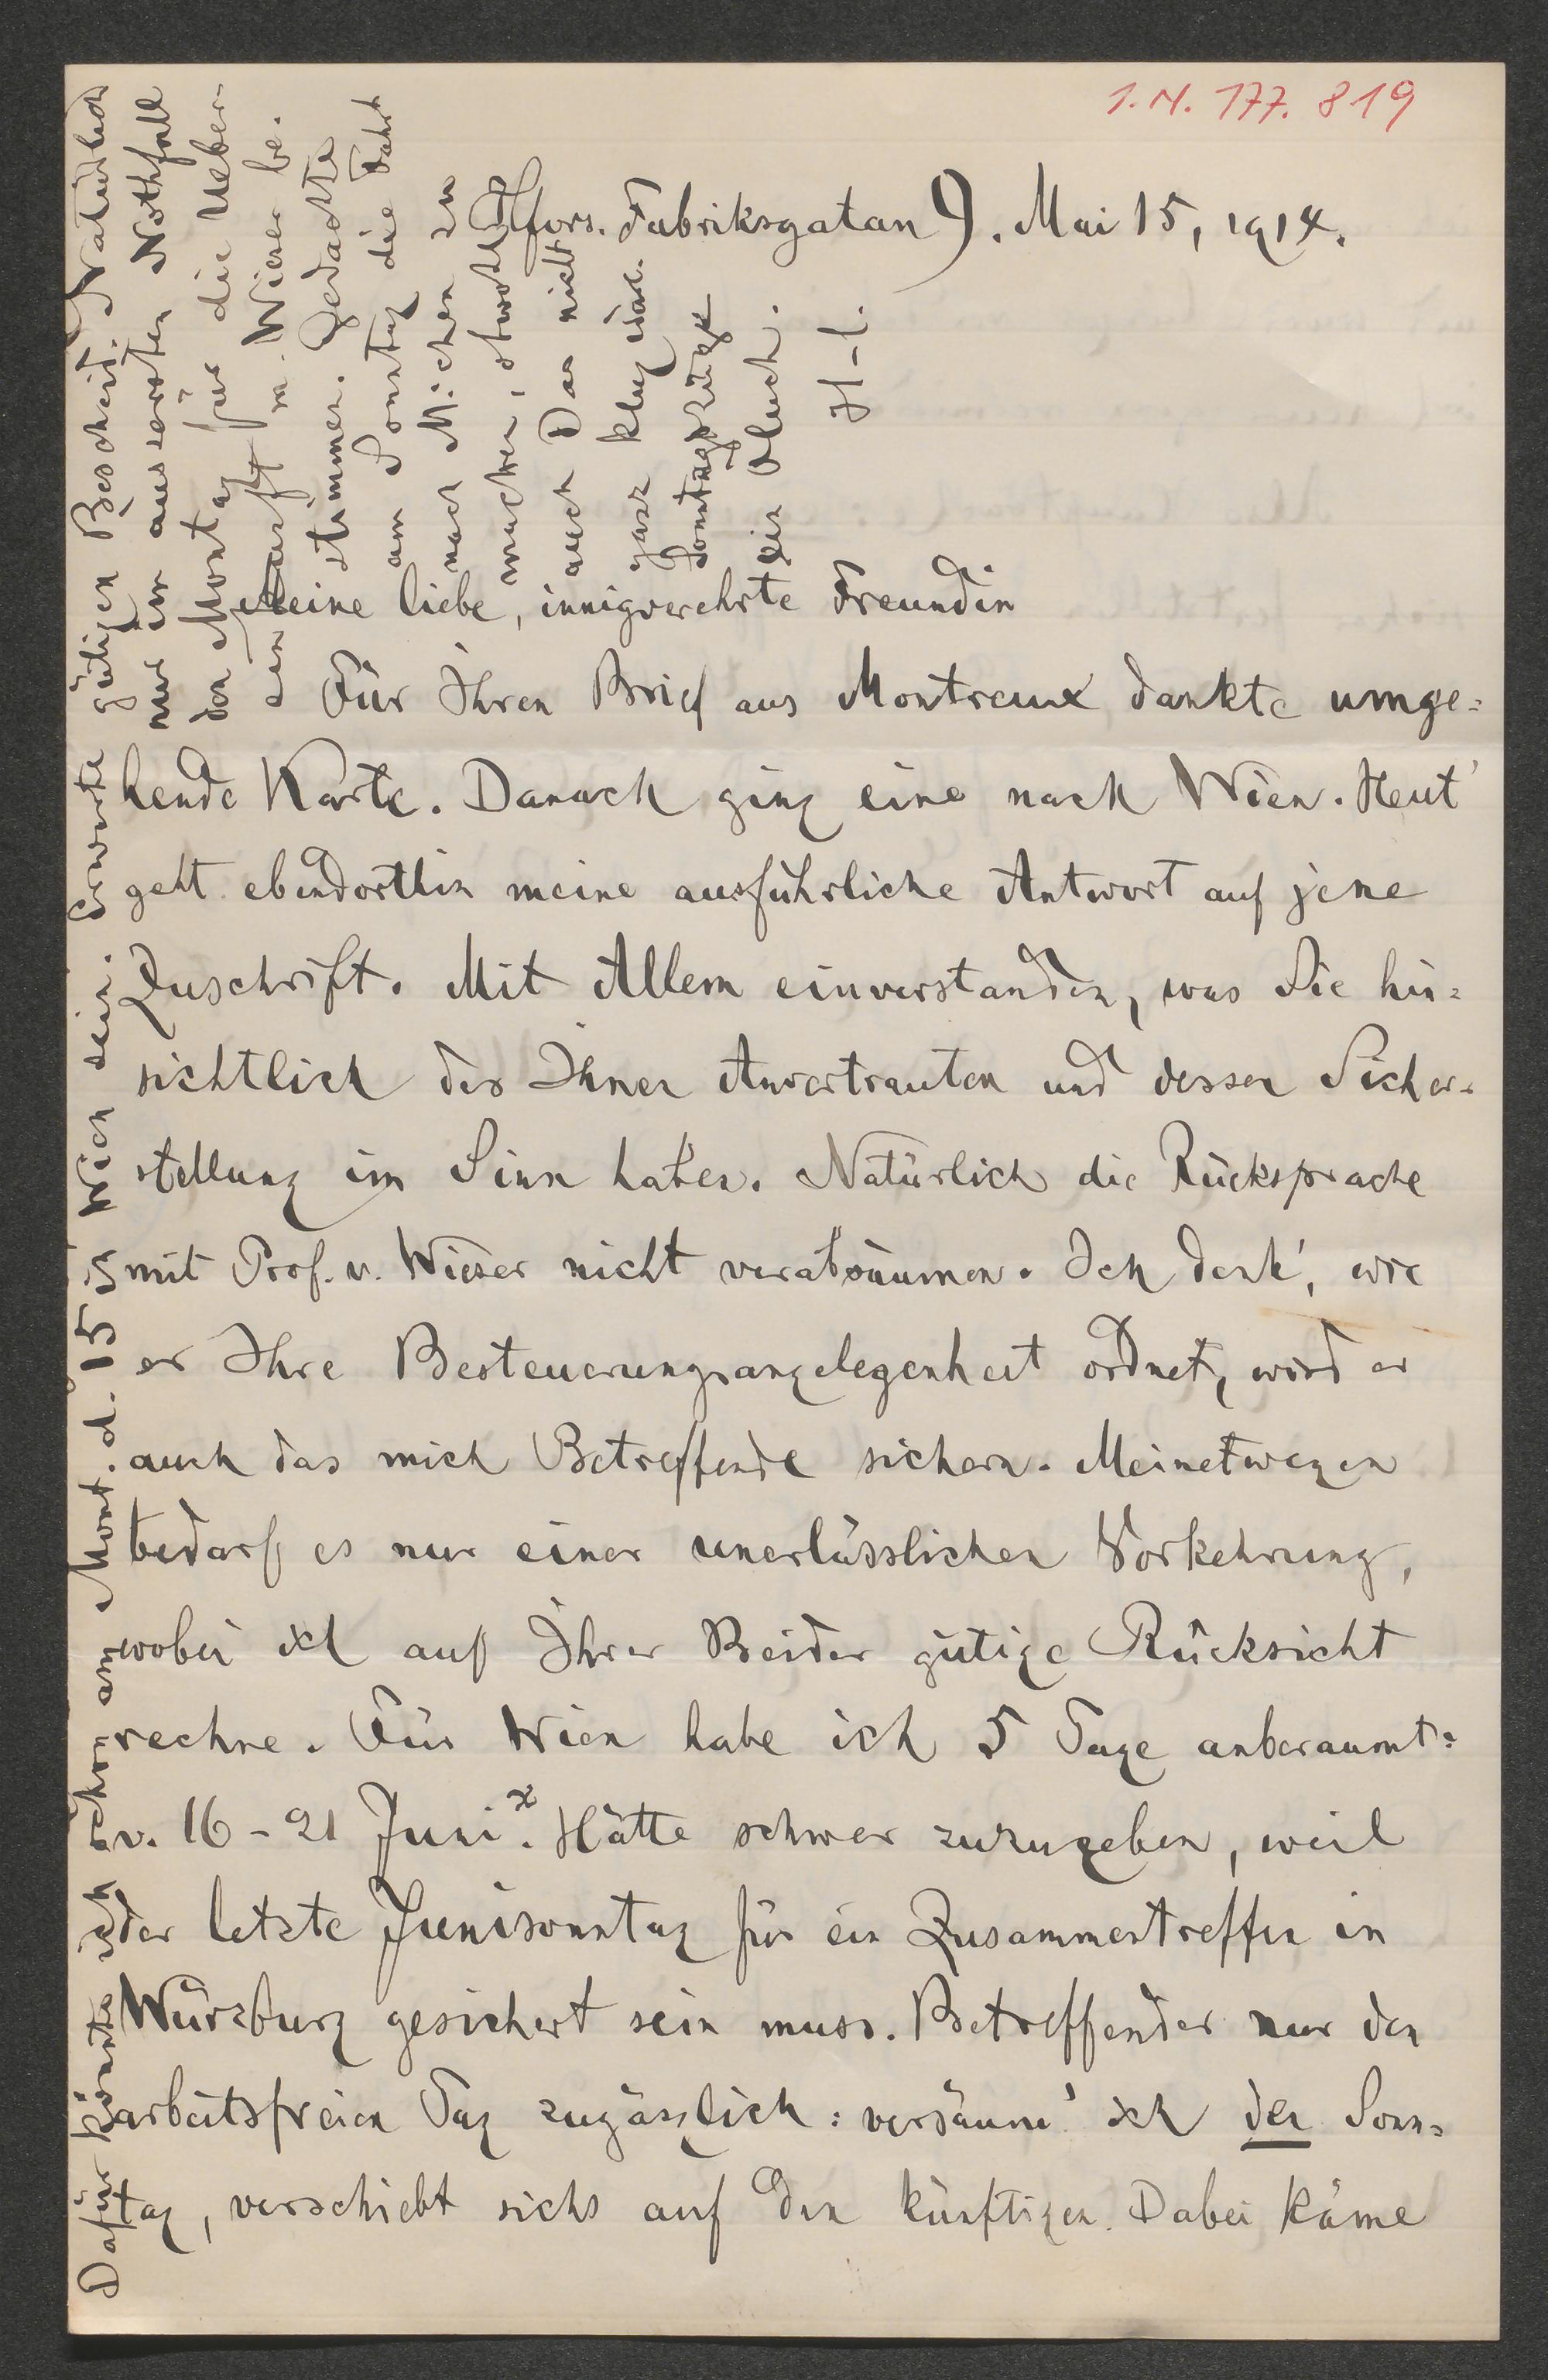 I.N. 177.819
Hfors. Fabriksgatan 9. Mai 15, 1914.
Meine liebe, innigverehrte Freundin
Für Ihren Brief aus Montreux dankte umge=
hende Karte. Danach ging eine nach Wien. Heut'
geht ebendorthin meine ausführliche Antwort auf jene
Zuschrift. Mit Allem einverstanden, was Sie hin=
sichtlich des Ihnen Anvertrauten und dessen Sicher=
stellung im Sinn haben. Natürlich die Rücksprache
mit Prof. v. Wieser nicht verabsäumen. Ich denk', wie
er Ihre Besteuerungsangelegenheit ordnet, wird er
auch das mich Betreffende sichern. Meinetwegen
bedarf es nur einer unerlässlichen Vorkehrung,
wobei ich auf Ihrer Beider gütige Rücksicht
rechne. Für Wien habe ich 5 Tage anberaumt:
v. 16 - 21 Juni.x Hätte schwer zuzugeben, weil
der letzte Junisonntag für ein Zusammentreffen in
Würzburg gesichert sein muss. Betreffender nur den
arbeitsfreien Tag zugänglich: versäum' ich den Sonn=
tag, verschiebt sichs auf den künftigen. Dabei käme
Dafür könnte ich schon am Mont. d. 15 in Wien sein. Erwarte gütigen Bescheid. Natürlich
nur im äussersten Nothfall
den Montag für die Ueber-
einkunft m. Wieser be-
stimmen. Gedachte
am Sonntag die Fahrt
nach München zu
machen, obwohl
auch Das nicht
ganz klug wäre.
Sonntagszüge
ein Fluch.
H-l.